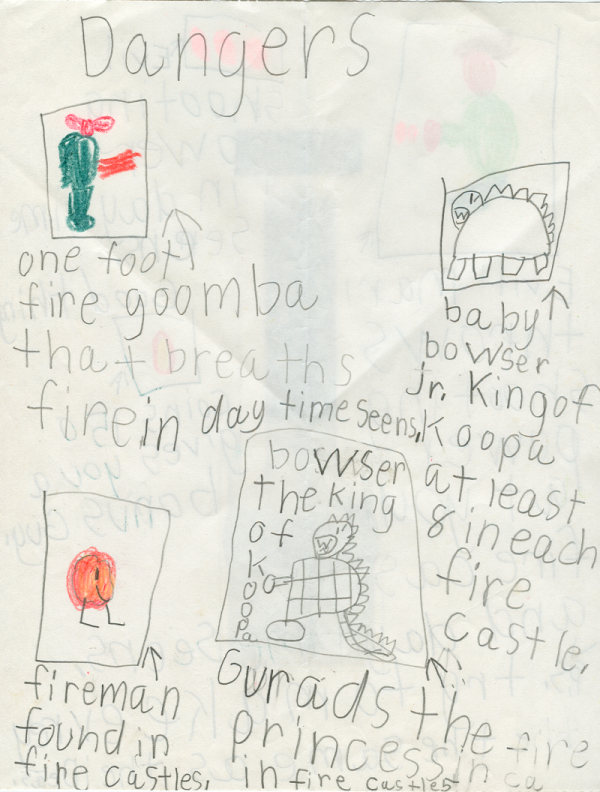 Dangers
one foot
fire goomba
that breaths
fire in day time seens,
baby
bowser
jr. King of
Koopa
at least
8 in each
fire
castle,
bowser
the king
of
Koopa
fireman
found in
fire castles,
Gurads the
princess in fire
in fire castles ca